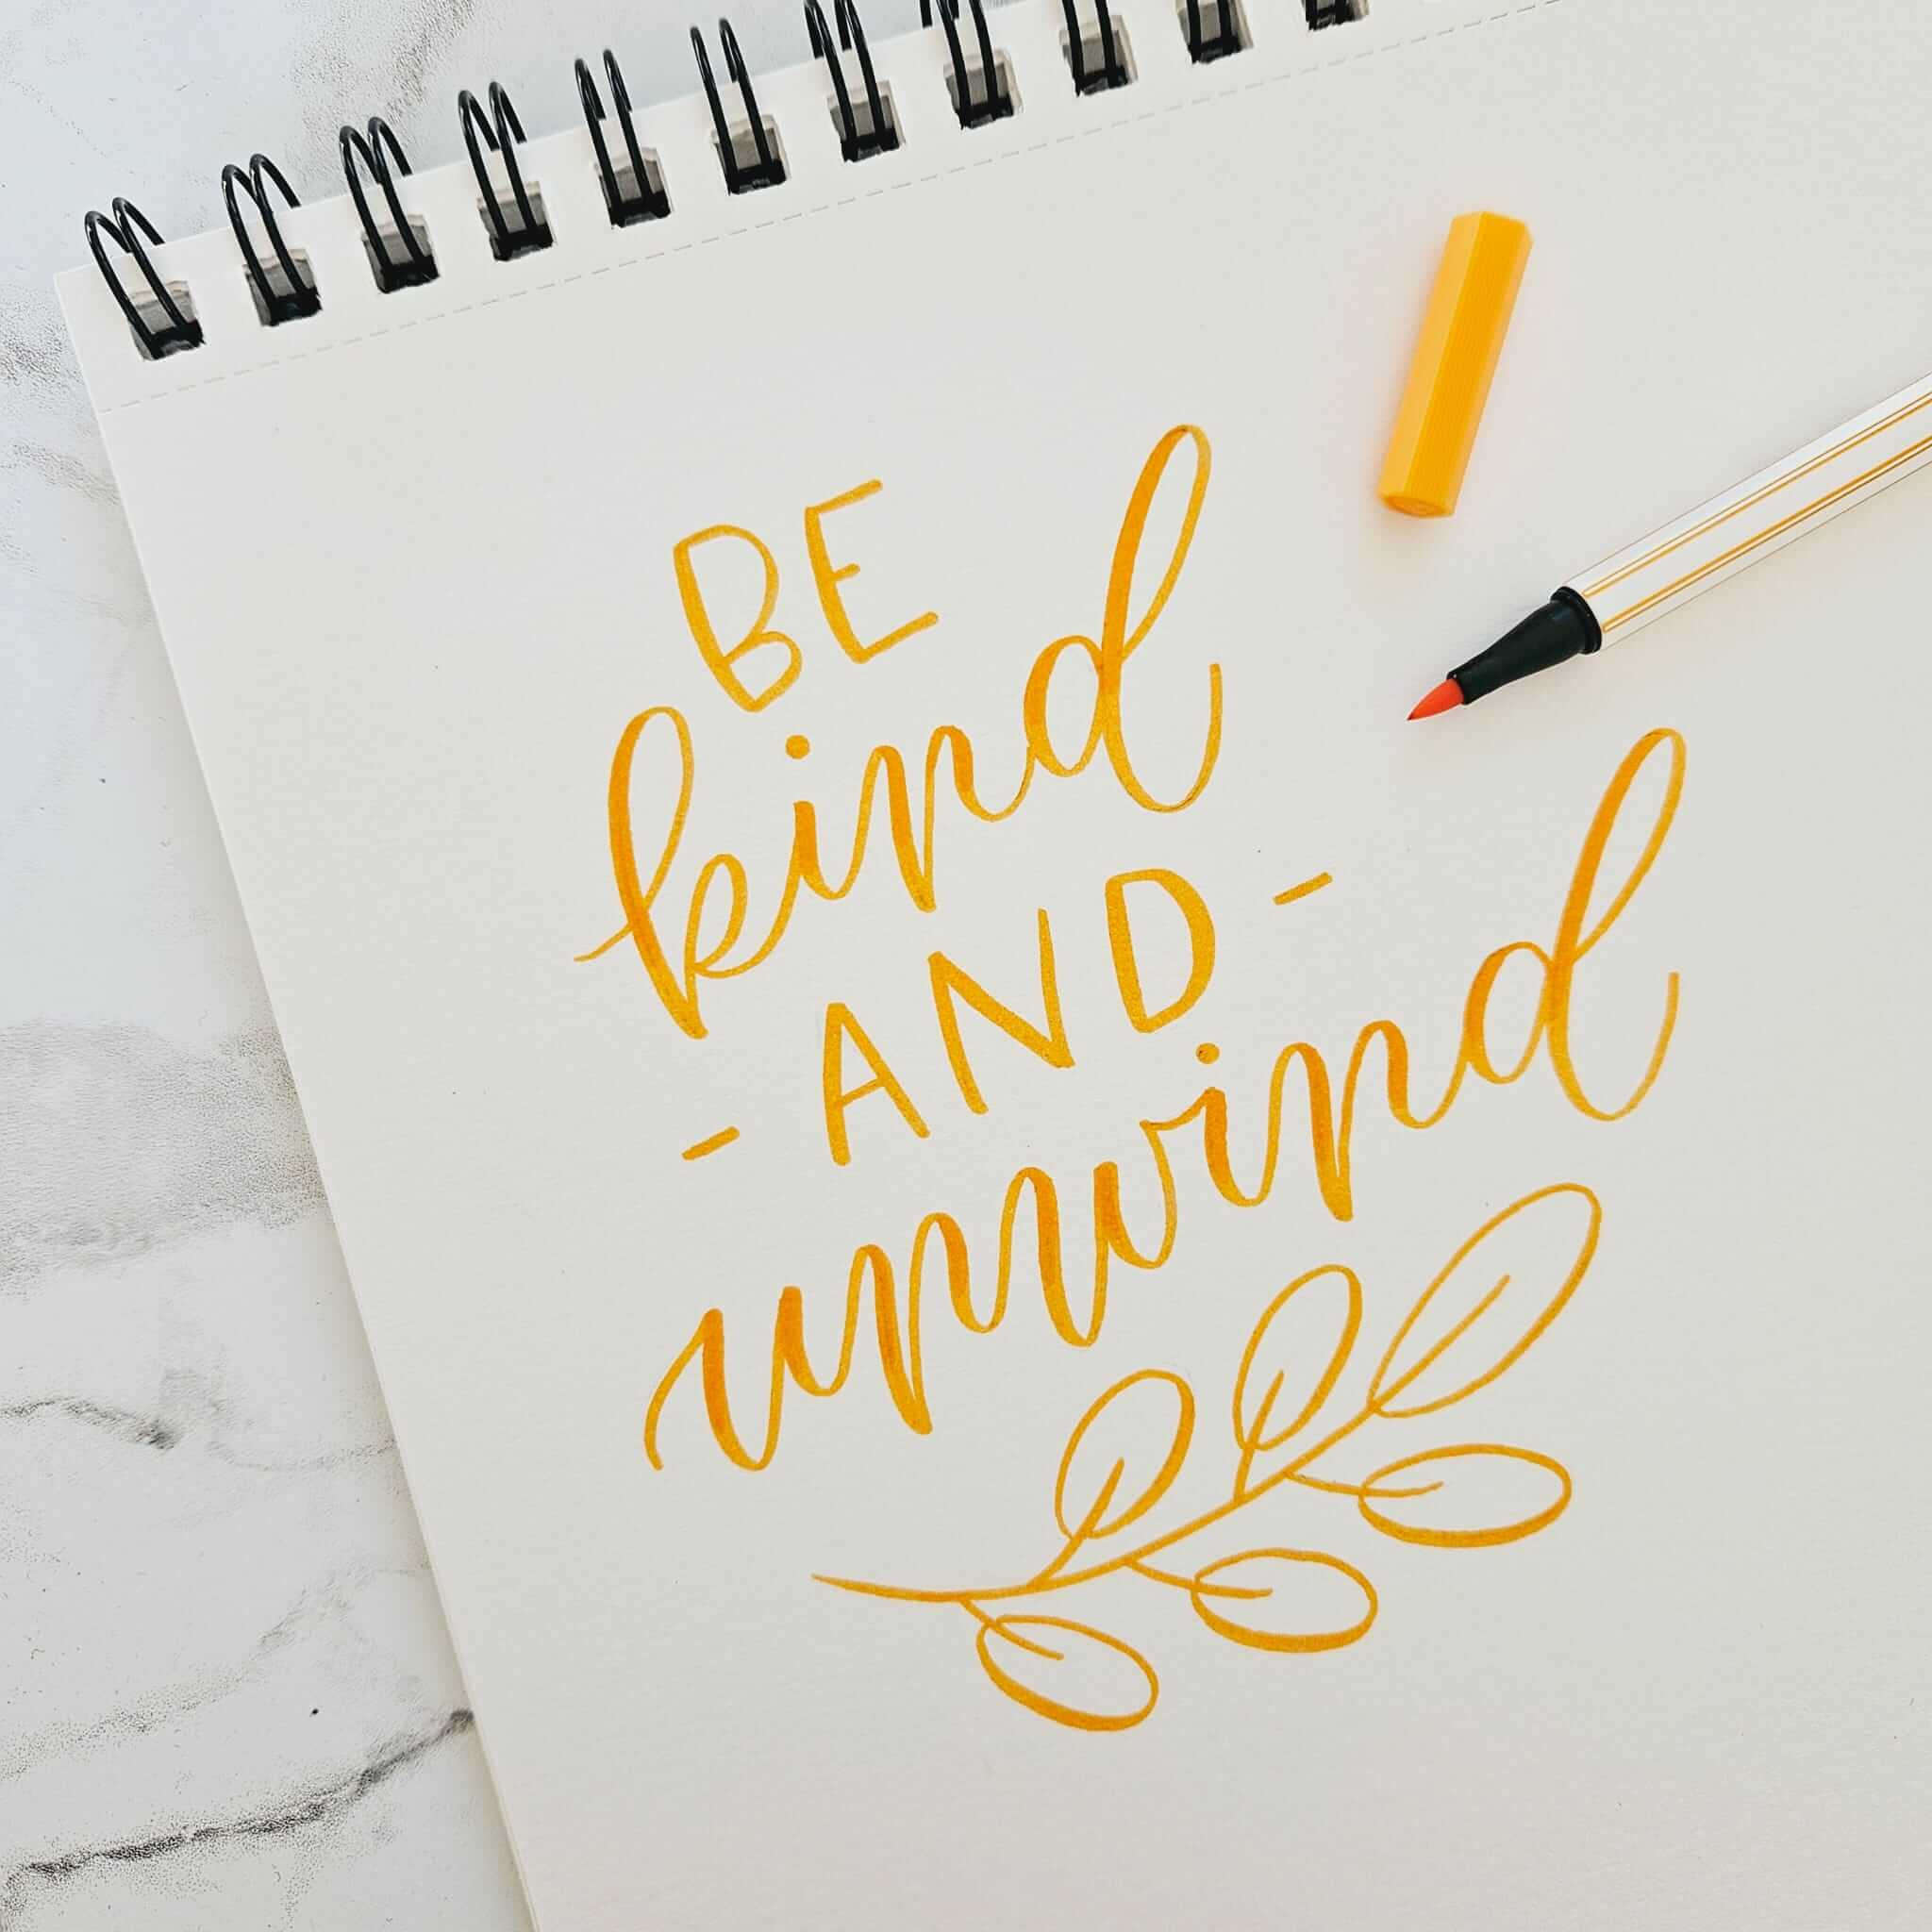 BE
kind
- AND -
unwind